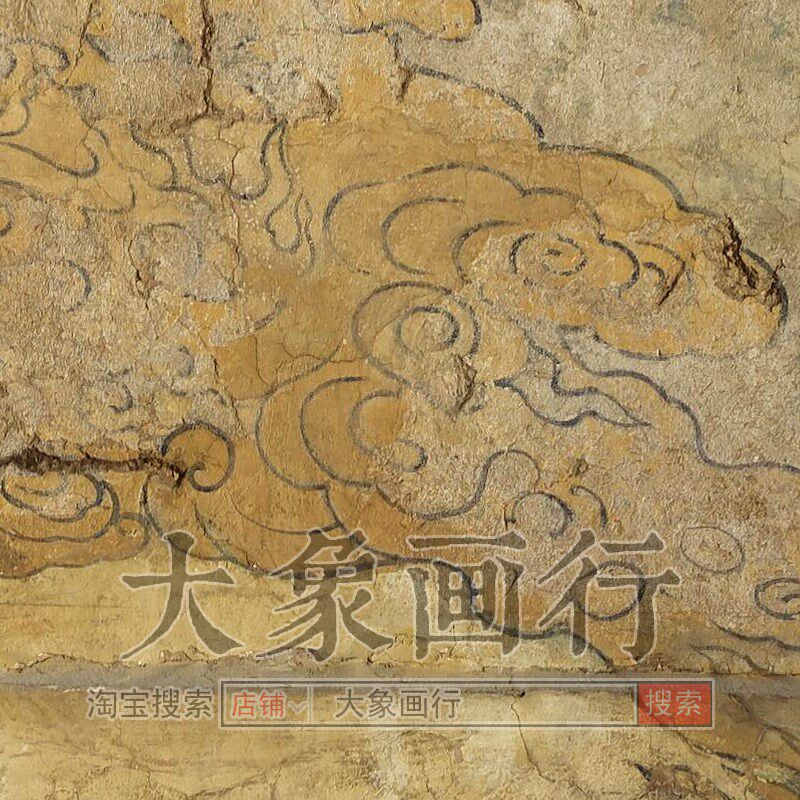 大象画行
淘宝搜索 店铺 大象画行 搜索